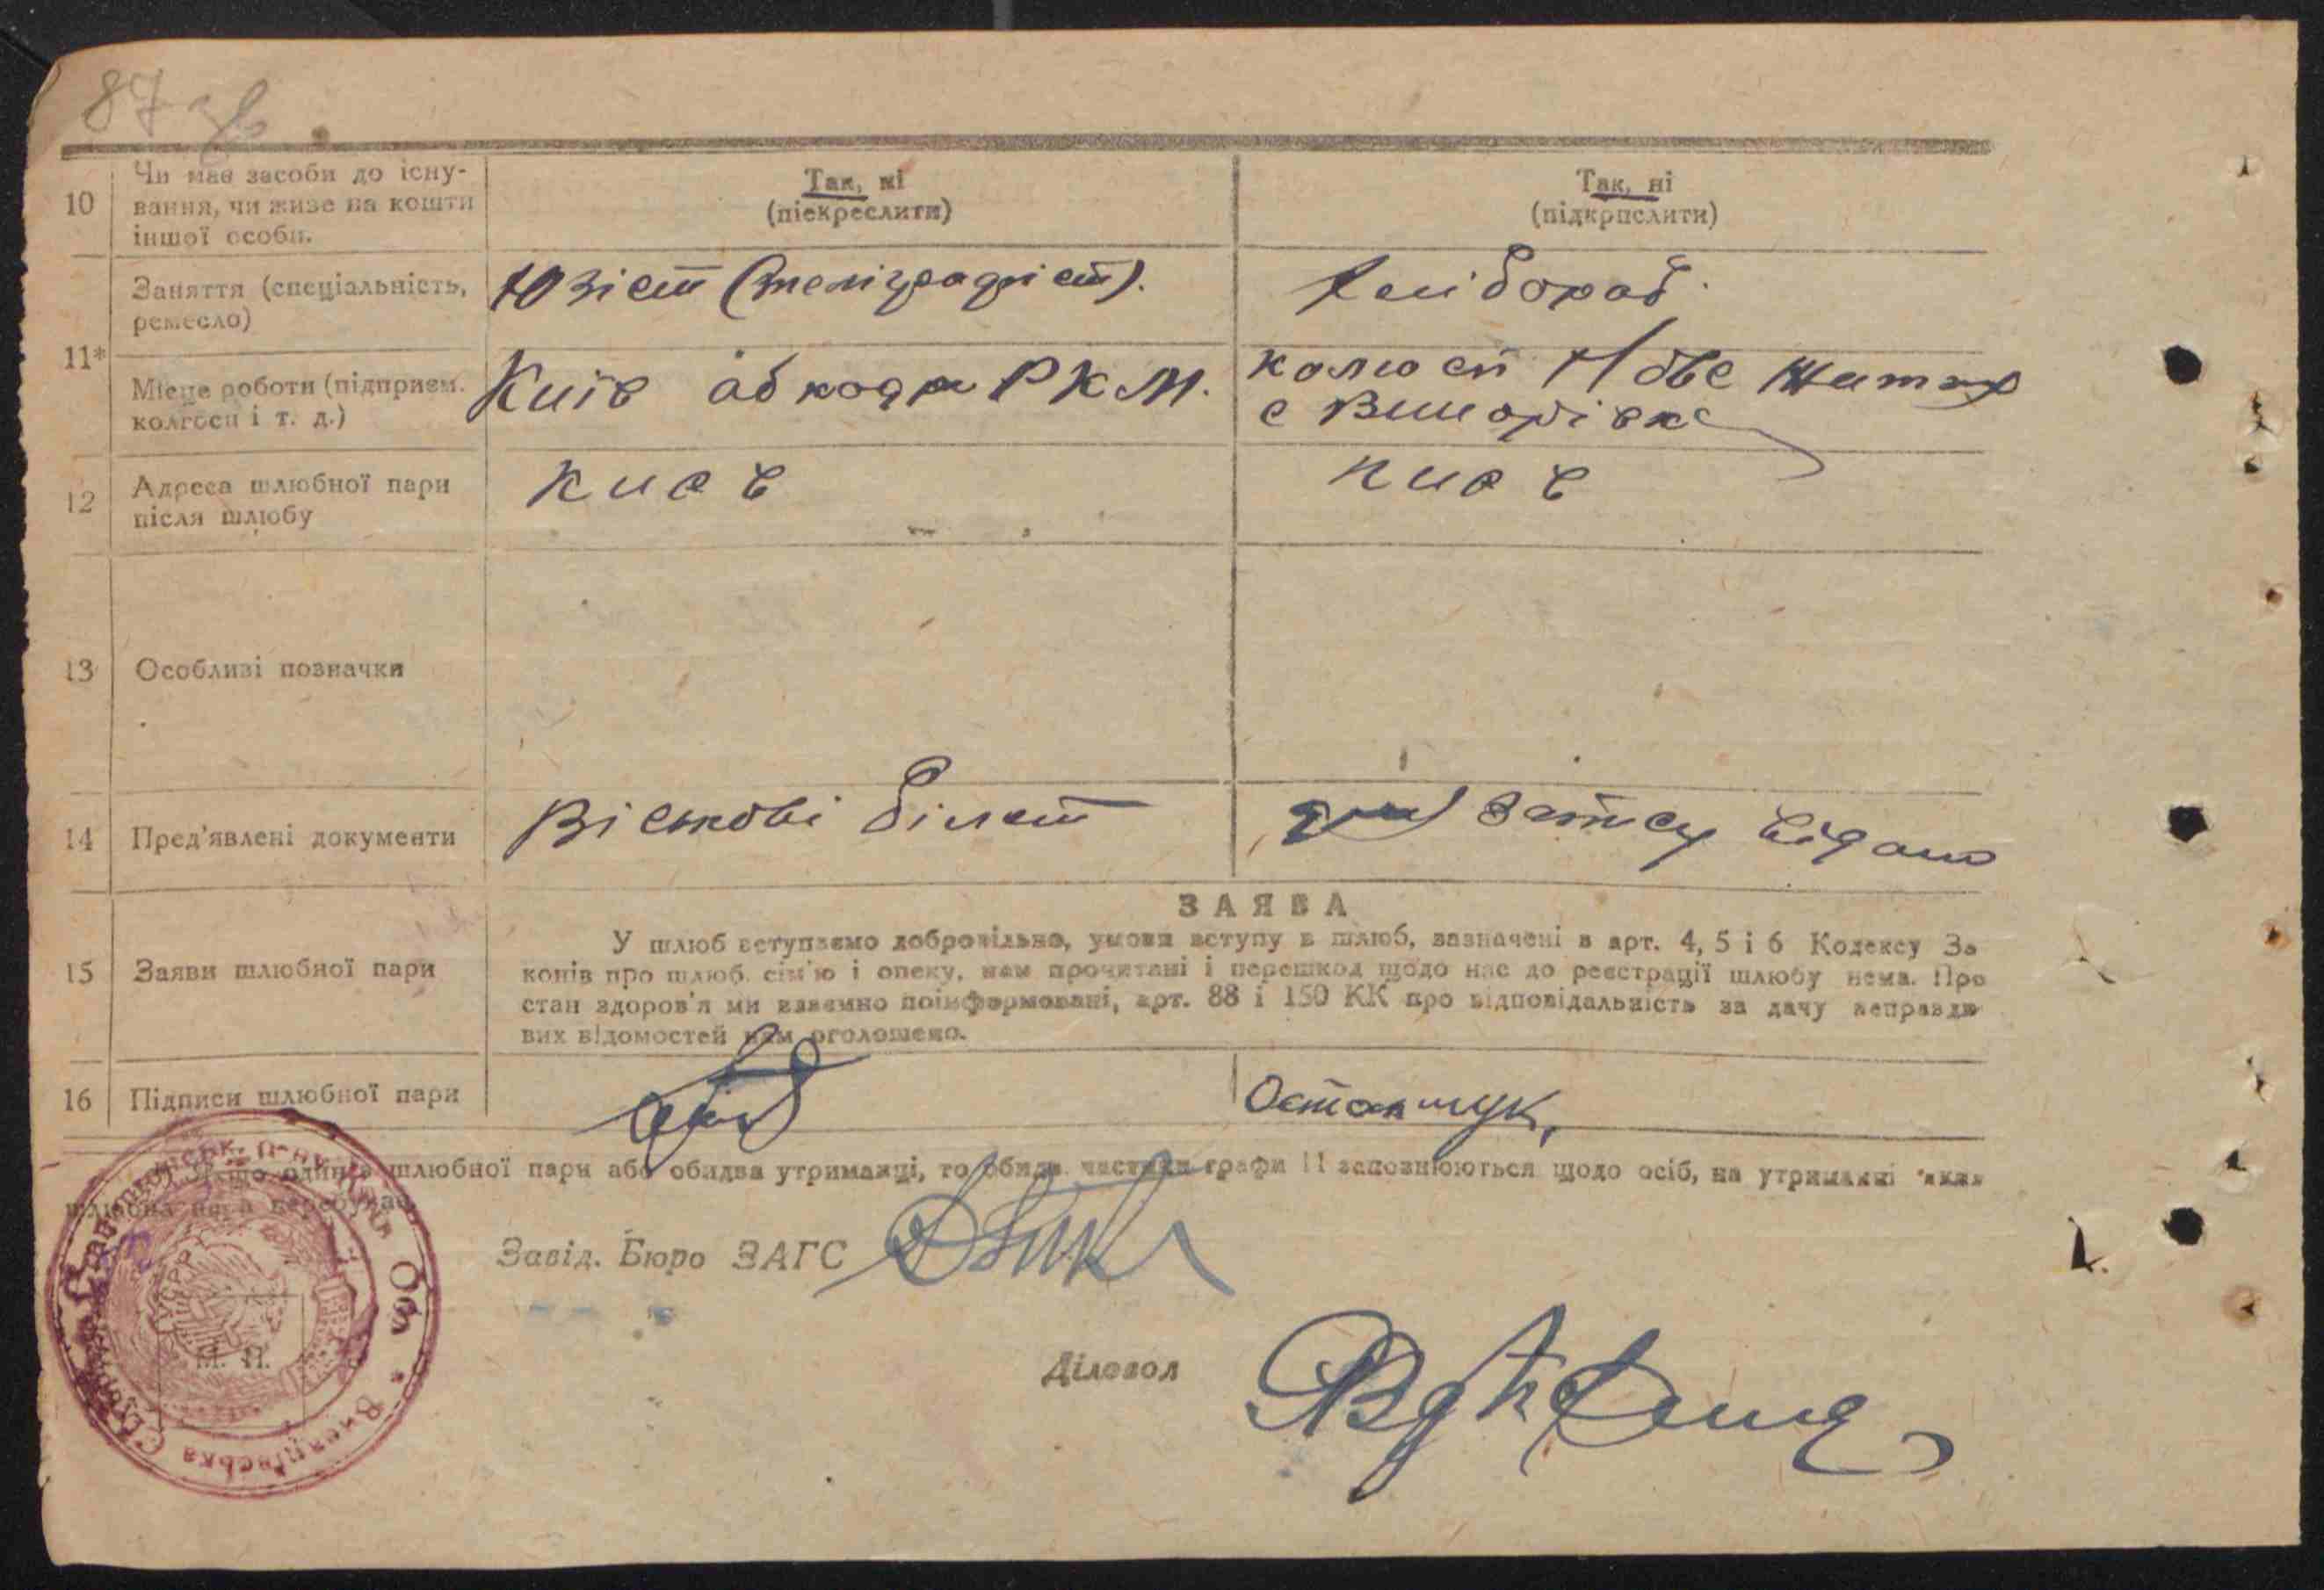 87 зв
10
Чи має засоби до існу-
вання, чи живе на кошти
іншої особи.
Так, ні
(піекреслити)
Так, ні
(підкрпслити)
11*
Заняття (спеціальність,
ремесло)
Юзіст (теліграфіст).
Хлібороб
Місце роботи (підприєм.
колгосп і т. д.)
Київ РКМ.
Нове Життя
с
12
Адреса шлюбної пари
після шлюбу
Киев
Киев
13
Особливі позначки
14
Пред'явлені документи
Віськові білет
запису
15
Заяви шлюбної пари
ЗАЯВА
У шлюб вступаємо добровільно, умови вступу в шлюб, зазначені в арт. 4, 5 і 6 Кодексу За
конів про шлюб. сім'ю і опеку, нам прочитані і перешкод щодо нас до реєстрації шлюбу нема. Про
стан здоров'я ми взаємно поінформовані, арт. 88 і 150 КК про відповідальність за дачу неправди
вих відомостей нам оголошено.
16
Підписи шлюбної пари
Остапчук,
Якщо один з шлюбної пари або обидва утриманці, то обидві частини графи 11 заповнюються щодо осіб, на утриманні яких
шлюбна пара перебуває
Завід. Бюро ЗАГС
Діловод
М. П.
УСРР